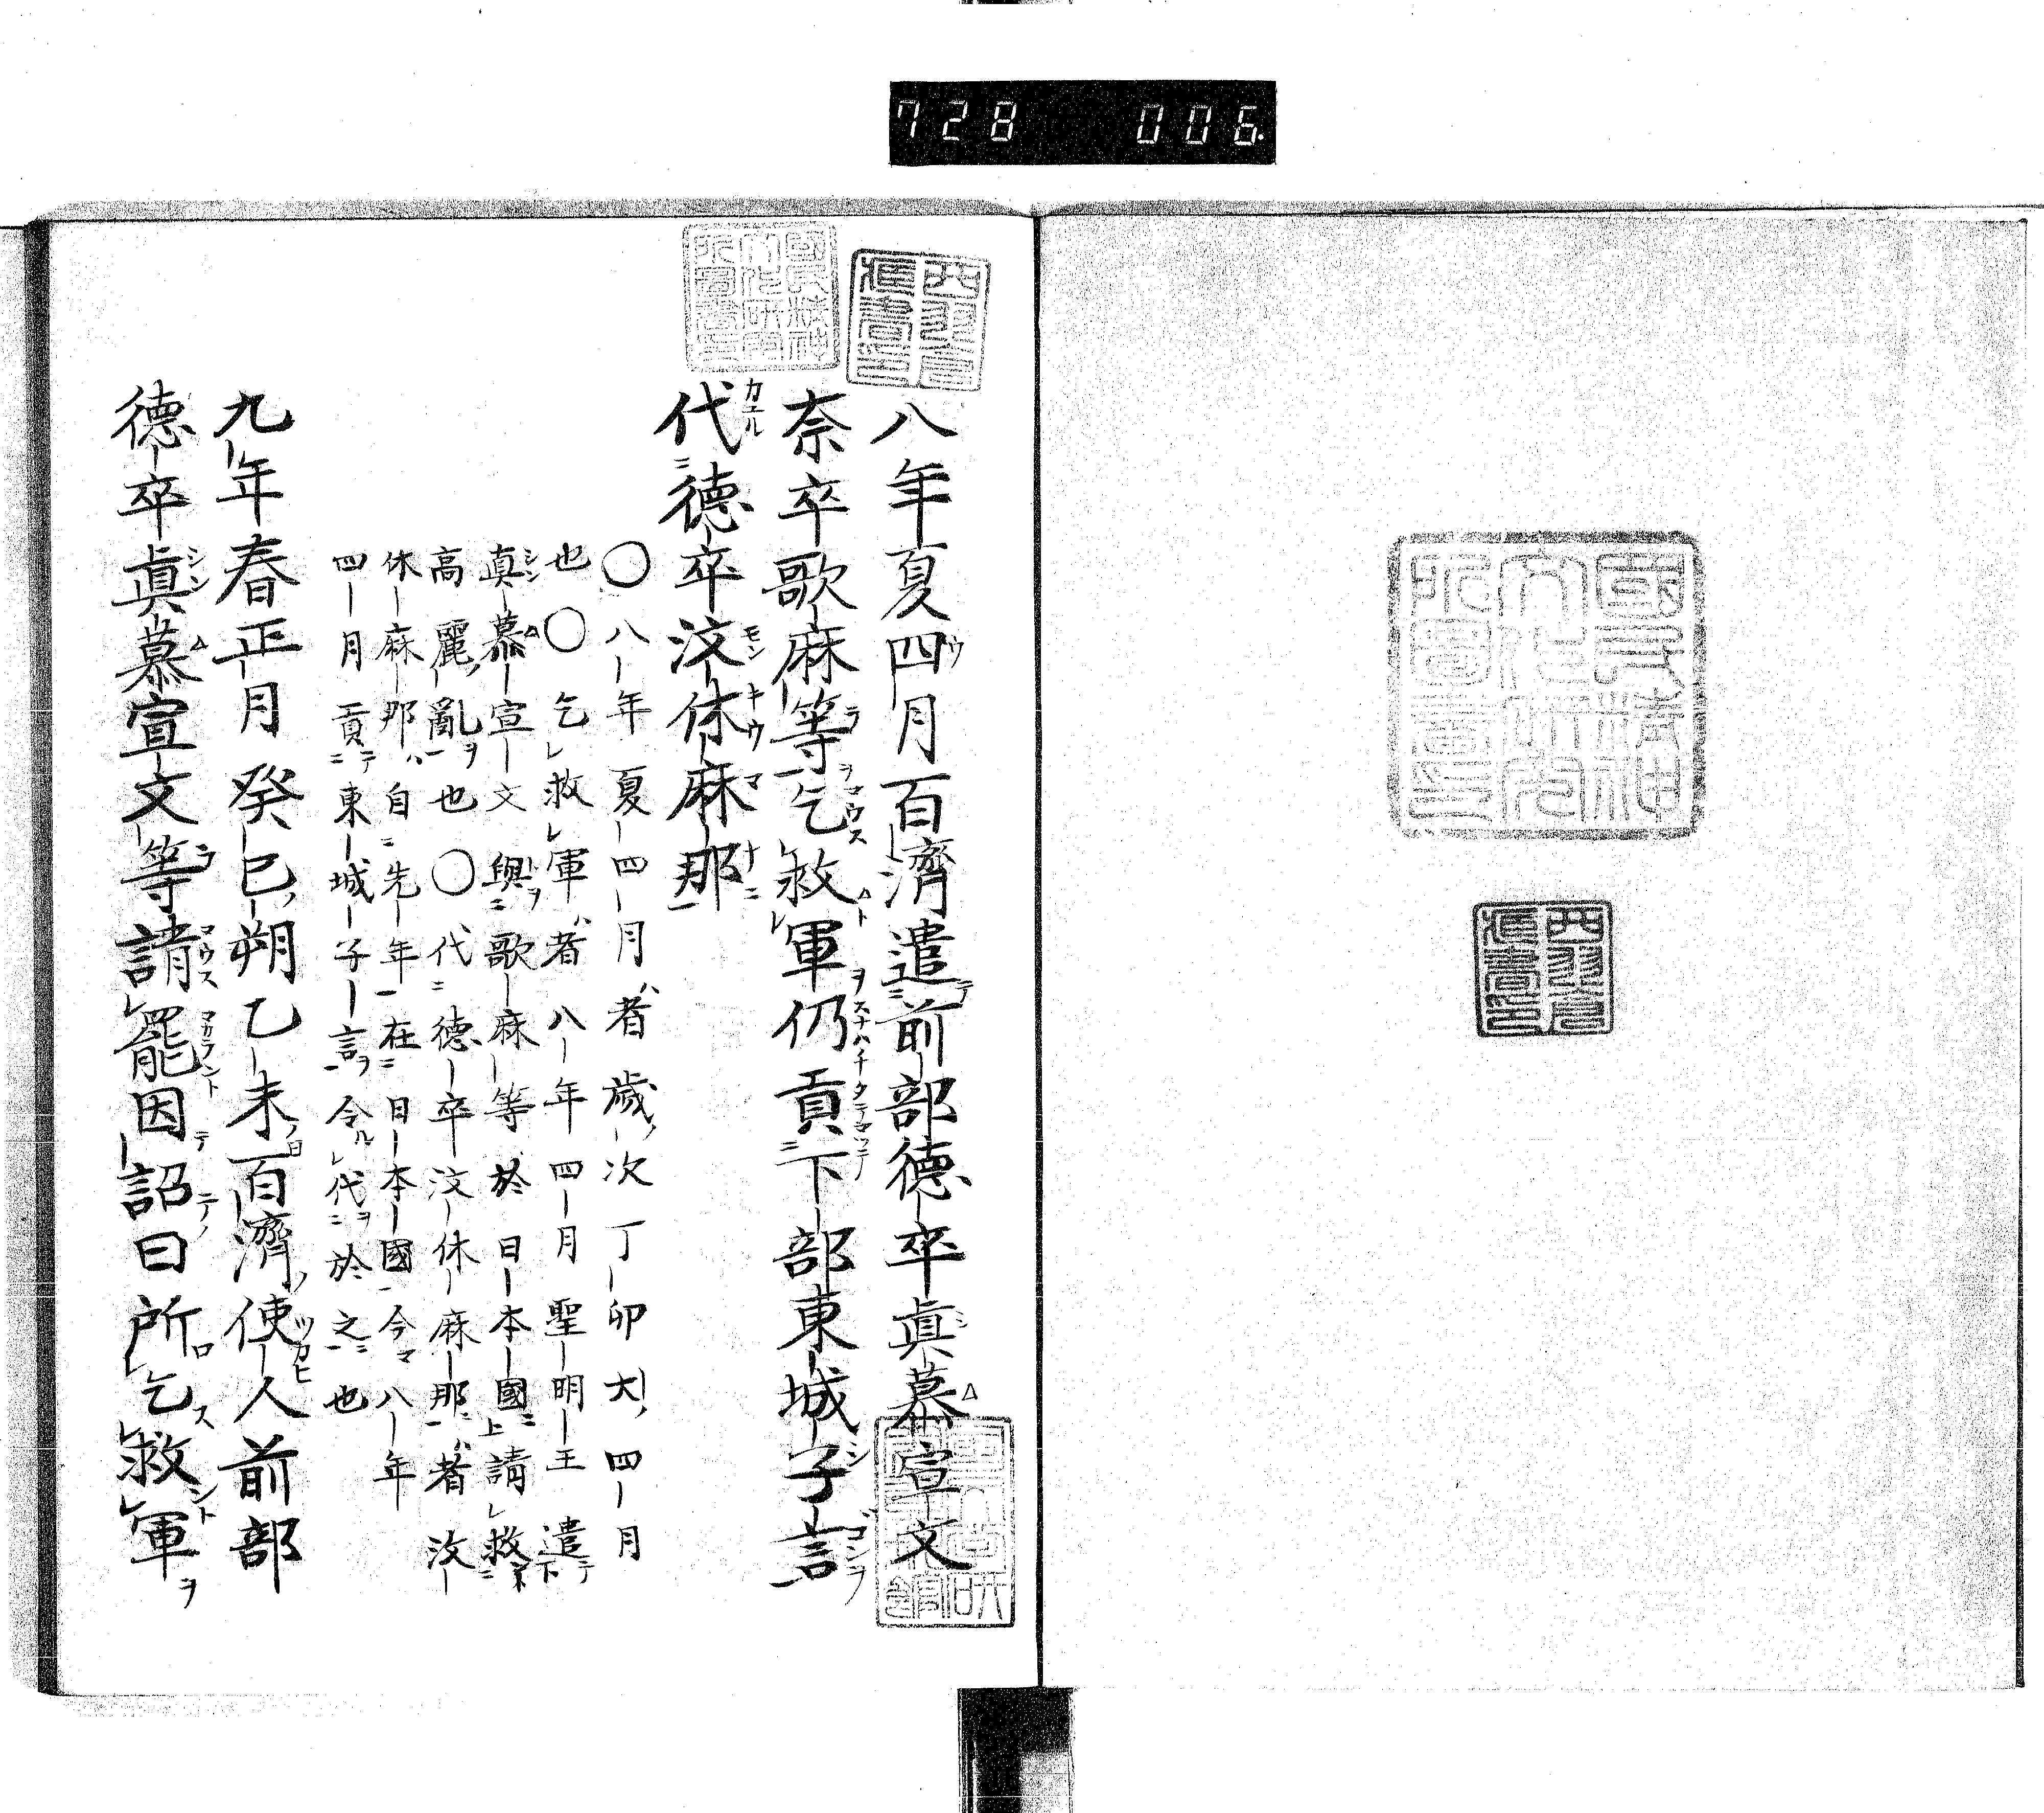 728 006
國民精神
文化研究
所圖書印
八年夏四月百濟遣前部德卒眞慕宣文
奈卒歌麻等乞救軍仍貢下部東城子言
代德卒汶休麻那
〇八年夏四月者歲次丁卯大四月
也〇乞救軍者八年四月聖明王遣
眞慕宣文與歌麻等於日本國請救
高麗亂也〇代德卒汶休麻那者汶
休麻那自先年在日本國今八年
四月貢東城子言令代於之也
九年春正月癸巳朔乙未百濟使人前部
德卒眞慕宣文等請罷因詔曰所乞救軍